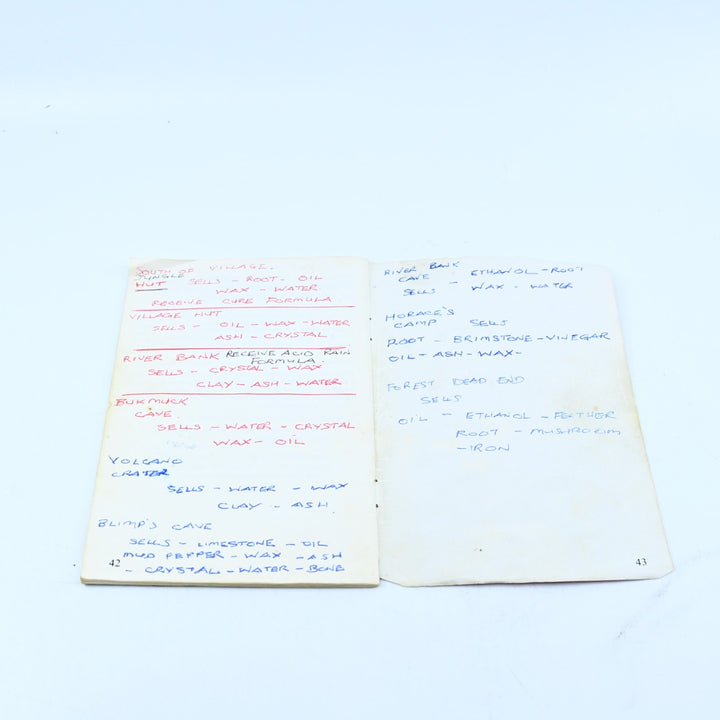 SOUTH OF VILLAGE.
JUNGLE
HUT SELLS - ROOT - OIL
WAX - WATER
RECEIVE CURE FORMULA
VILLAGE HUT
SELLS - OIL - WAX - WATER
ASH - CRYSTAL.
RIVER BANK RECEIVE ACID RAIN
FORMULA.
SELLS - CRYSTAL - WAX
CLAY - ASH - WATER
BUKMUCK
CAVE.
SELLS - WATER - CRYSTAL
WAX - OIL
VOLCANO
CRATER
SELLS - WATER - WAX
CLAY - ASH
BLIMP'S CAVE
SELLS - LIMESTONE - OIL
MUD PEPPER - WAX - ASH
- CRYSTAL - WATER - BONE
42
RIVER BANK
CAVE - ETHANOL - ROOT
SELLS WAX - WATER
HORACE'S
CAMP SELLS
ROOT - BRIMSTONE - VINEGAR
OIL - ASH - WAX -
FOREST DEAD END
SELLS
OIL - ETHANOL - FEATHER
ROOT - MUSHROOM
- IRON
43